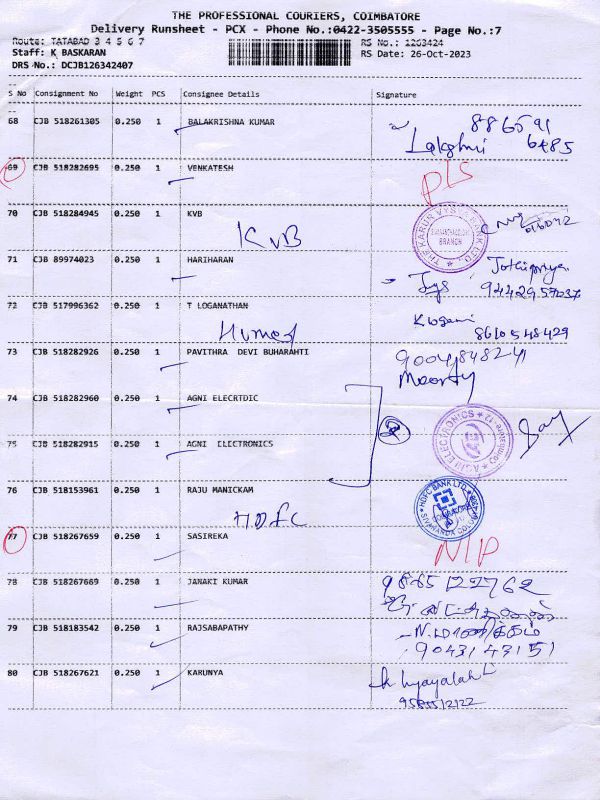 THE PROFESSIONAL COURIERS, COIMBATORE
Delivery Runsheet - PCX - Phone No.:0422-3505555 - Page No.:7
Route: TATABAD 3 4 5 6 7 RS No.: 1263424
Staff: K BASKARAN RS Date: 26-Oct-2023
DRS No.: DCJB126342407
S No Consignment No Weight PCS Consignee Details Signature
68 CJB 518261305 0.250 1 BALAKRISHNA KUMAR
Lakshmi
69 CJB 518282695 0.250 1 VENKATESH
70 CJB 518284945 0.250 1 KVB
KVB
THE KARUR VYSYA BANK LTD. BRANCH
71 CJB 89974023 0.250 1 HARIHARAN
72 CJB 517996362 0.250 1 T LOGANATHAN
8610548429
73 CJB 518282926 0.250 1 PAVITHRA DEVI BUHARAHTI
Moorthy
74 CJB 518282960 0.250 1 AGNI ELECRTDIC
2
AGNI ELECTRONICS
75 CJB 518282915 0.250 1 AGNI ELECTRONICS
76 CJB 518153961 0.250 1 RAJU MANICKAM
HDFC
HDFC BANK LTD.
77 CJB 518267659 0.250 1 SASIREKA
78 CJB 518267669 0.250 1 JANAKI KUMAR
9865122762
79 CJB 518183542 0.250 1 RAJSABAPATHY
9043143151
80 CJB 518267621 0.250 1 KARUNYA